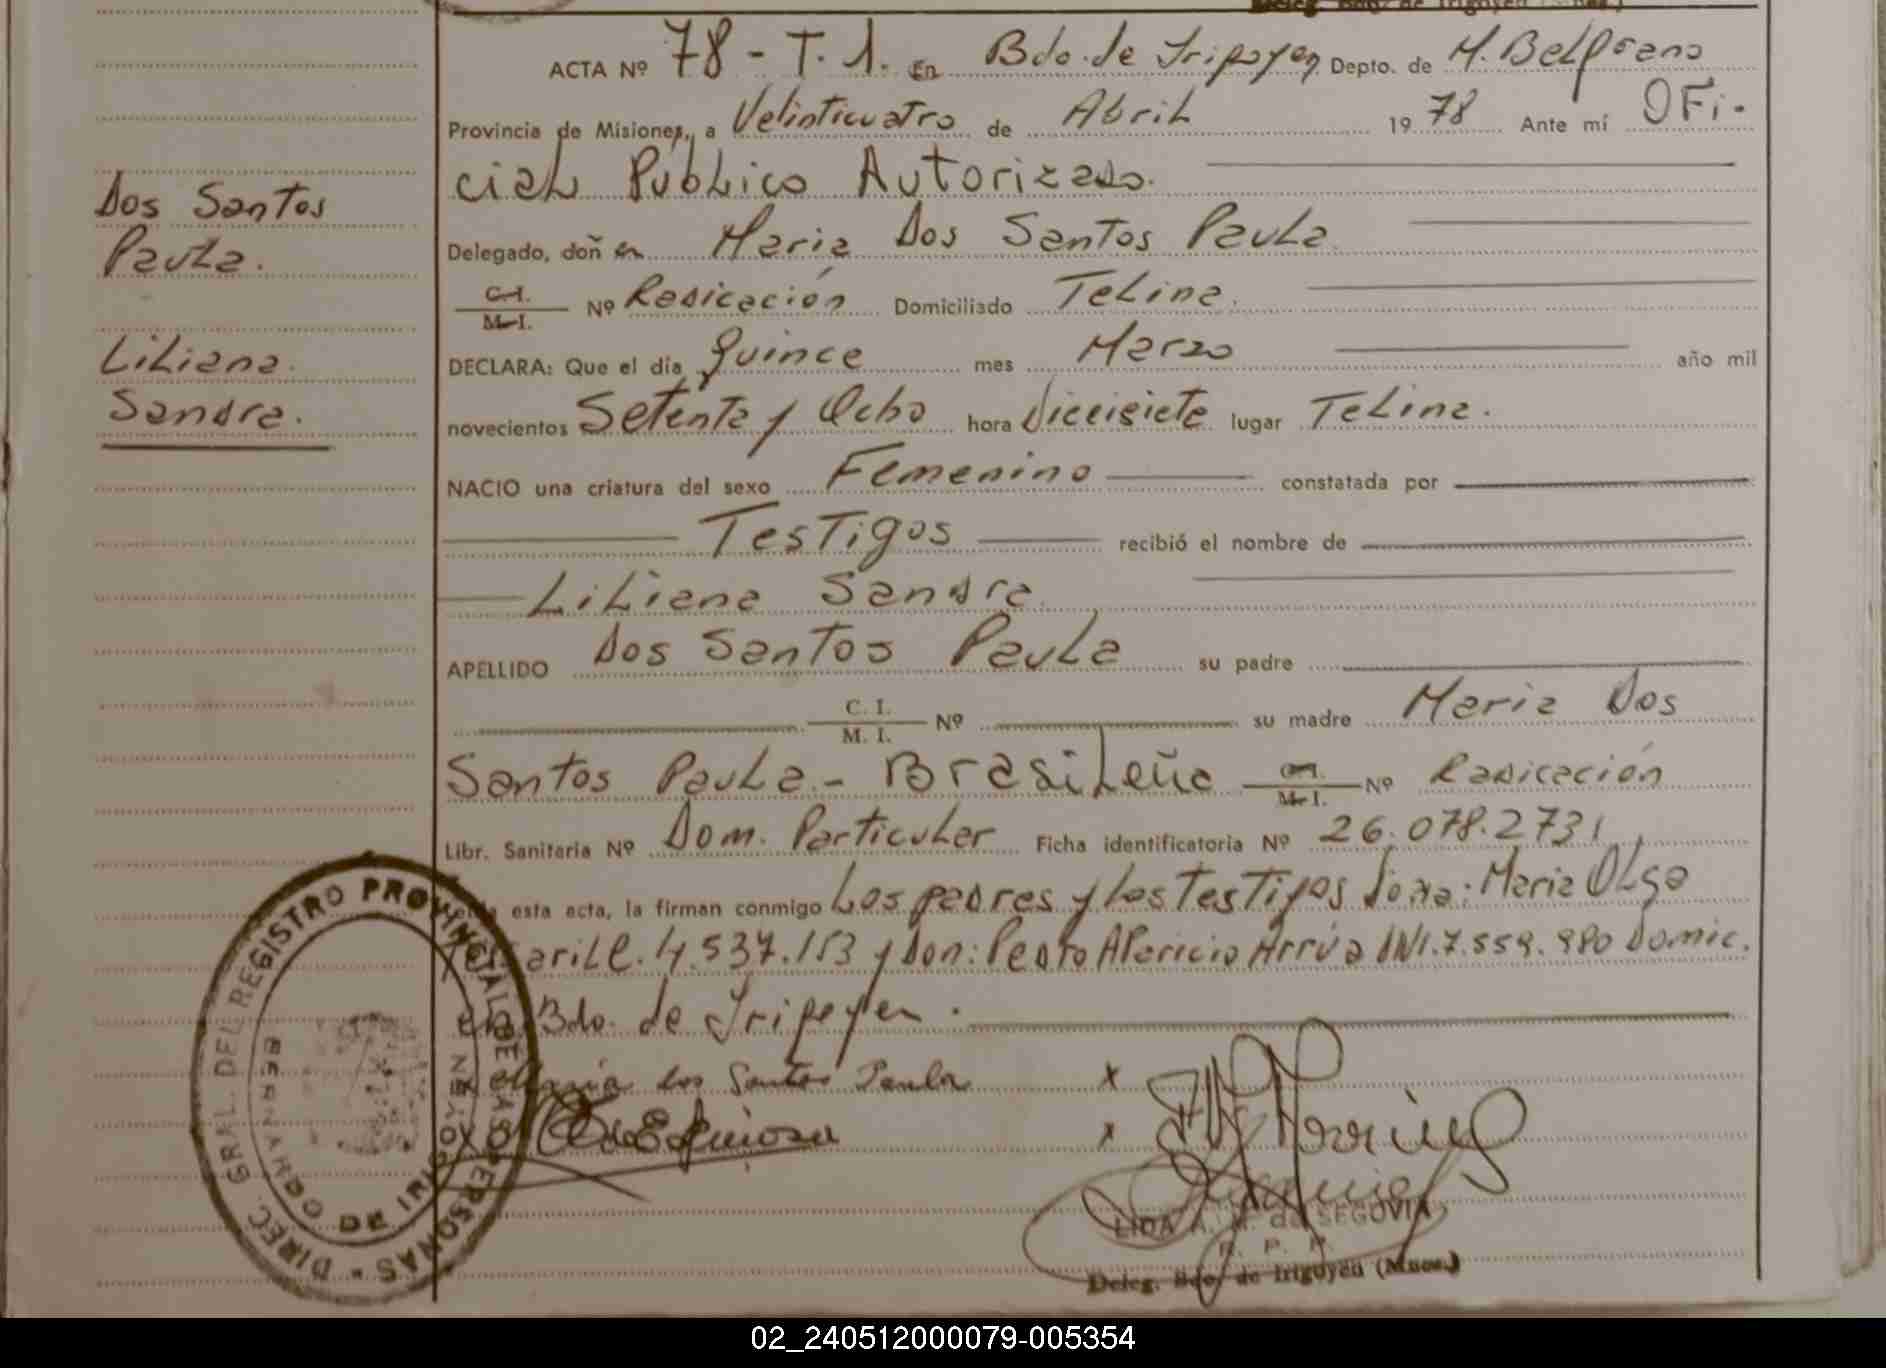 Deleg. Bdo. de Irigoyen (Mnes.)
ACTA Nº 78 - T. 1. En Bdo. de Irigoyen Depto. de M. Belgrano
Provincia de Misiones, a Veinticuatro de Abril 1978 Ante mí OFi-
ciaL PúbLico Autorizado.
Delegado, doñ en Maria Dos Santos PauLa
C.I. M.I. Nº Radicación Domiciliado TeLina.
DECLARA: Que el día quince mes Marzo año mil
novecientos Setenta y Ocho hora Diecisiete lugar TeLina.
NACIO una criatura del sexo Femenino constatada por
Testigos recibió el nombre de
LiLiana Sandra
APELLIDO Dos Santos PauLa su padre
C. I. M. I. Nº su madre Maria Dos
Santos PauLa - BrasiLeña C.I. M.I. Nº Radicación
Libr. Sanitaria Nº Dom. ParticuLar Ficha identificatoria Nº 26.078.273
esta acta, la firman conmigo Los padres y Los Testigos Doña: Maria OLga
4.537.153 y Don: Pedro Aparicio Arrúa DNI. 7.559.980 Domic.
en Bdo. de Irigoyen.
Maria dos Santos Paula x
x
LIDA A. N. de SEGOVIA
R. P. P.
Deleg. Bdo. de Irigoyen (Mnes.)
Dos Santos
PauLa.
LiLiana
Sandra.
DIREC. GRAL. DEL REGISTRO PROVINCIAL DE LAS PERSONAS
BERNARDO DE IRIGOYEN
02_240512000079-005354